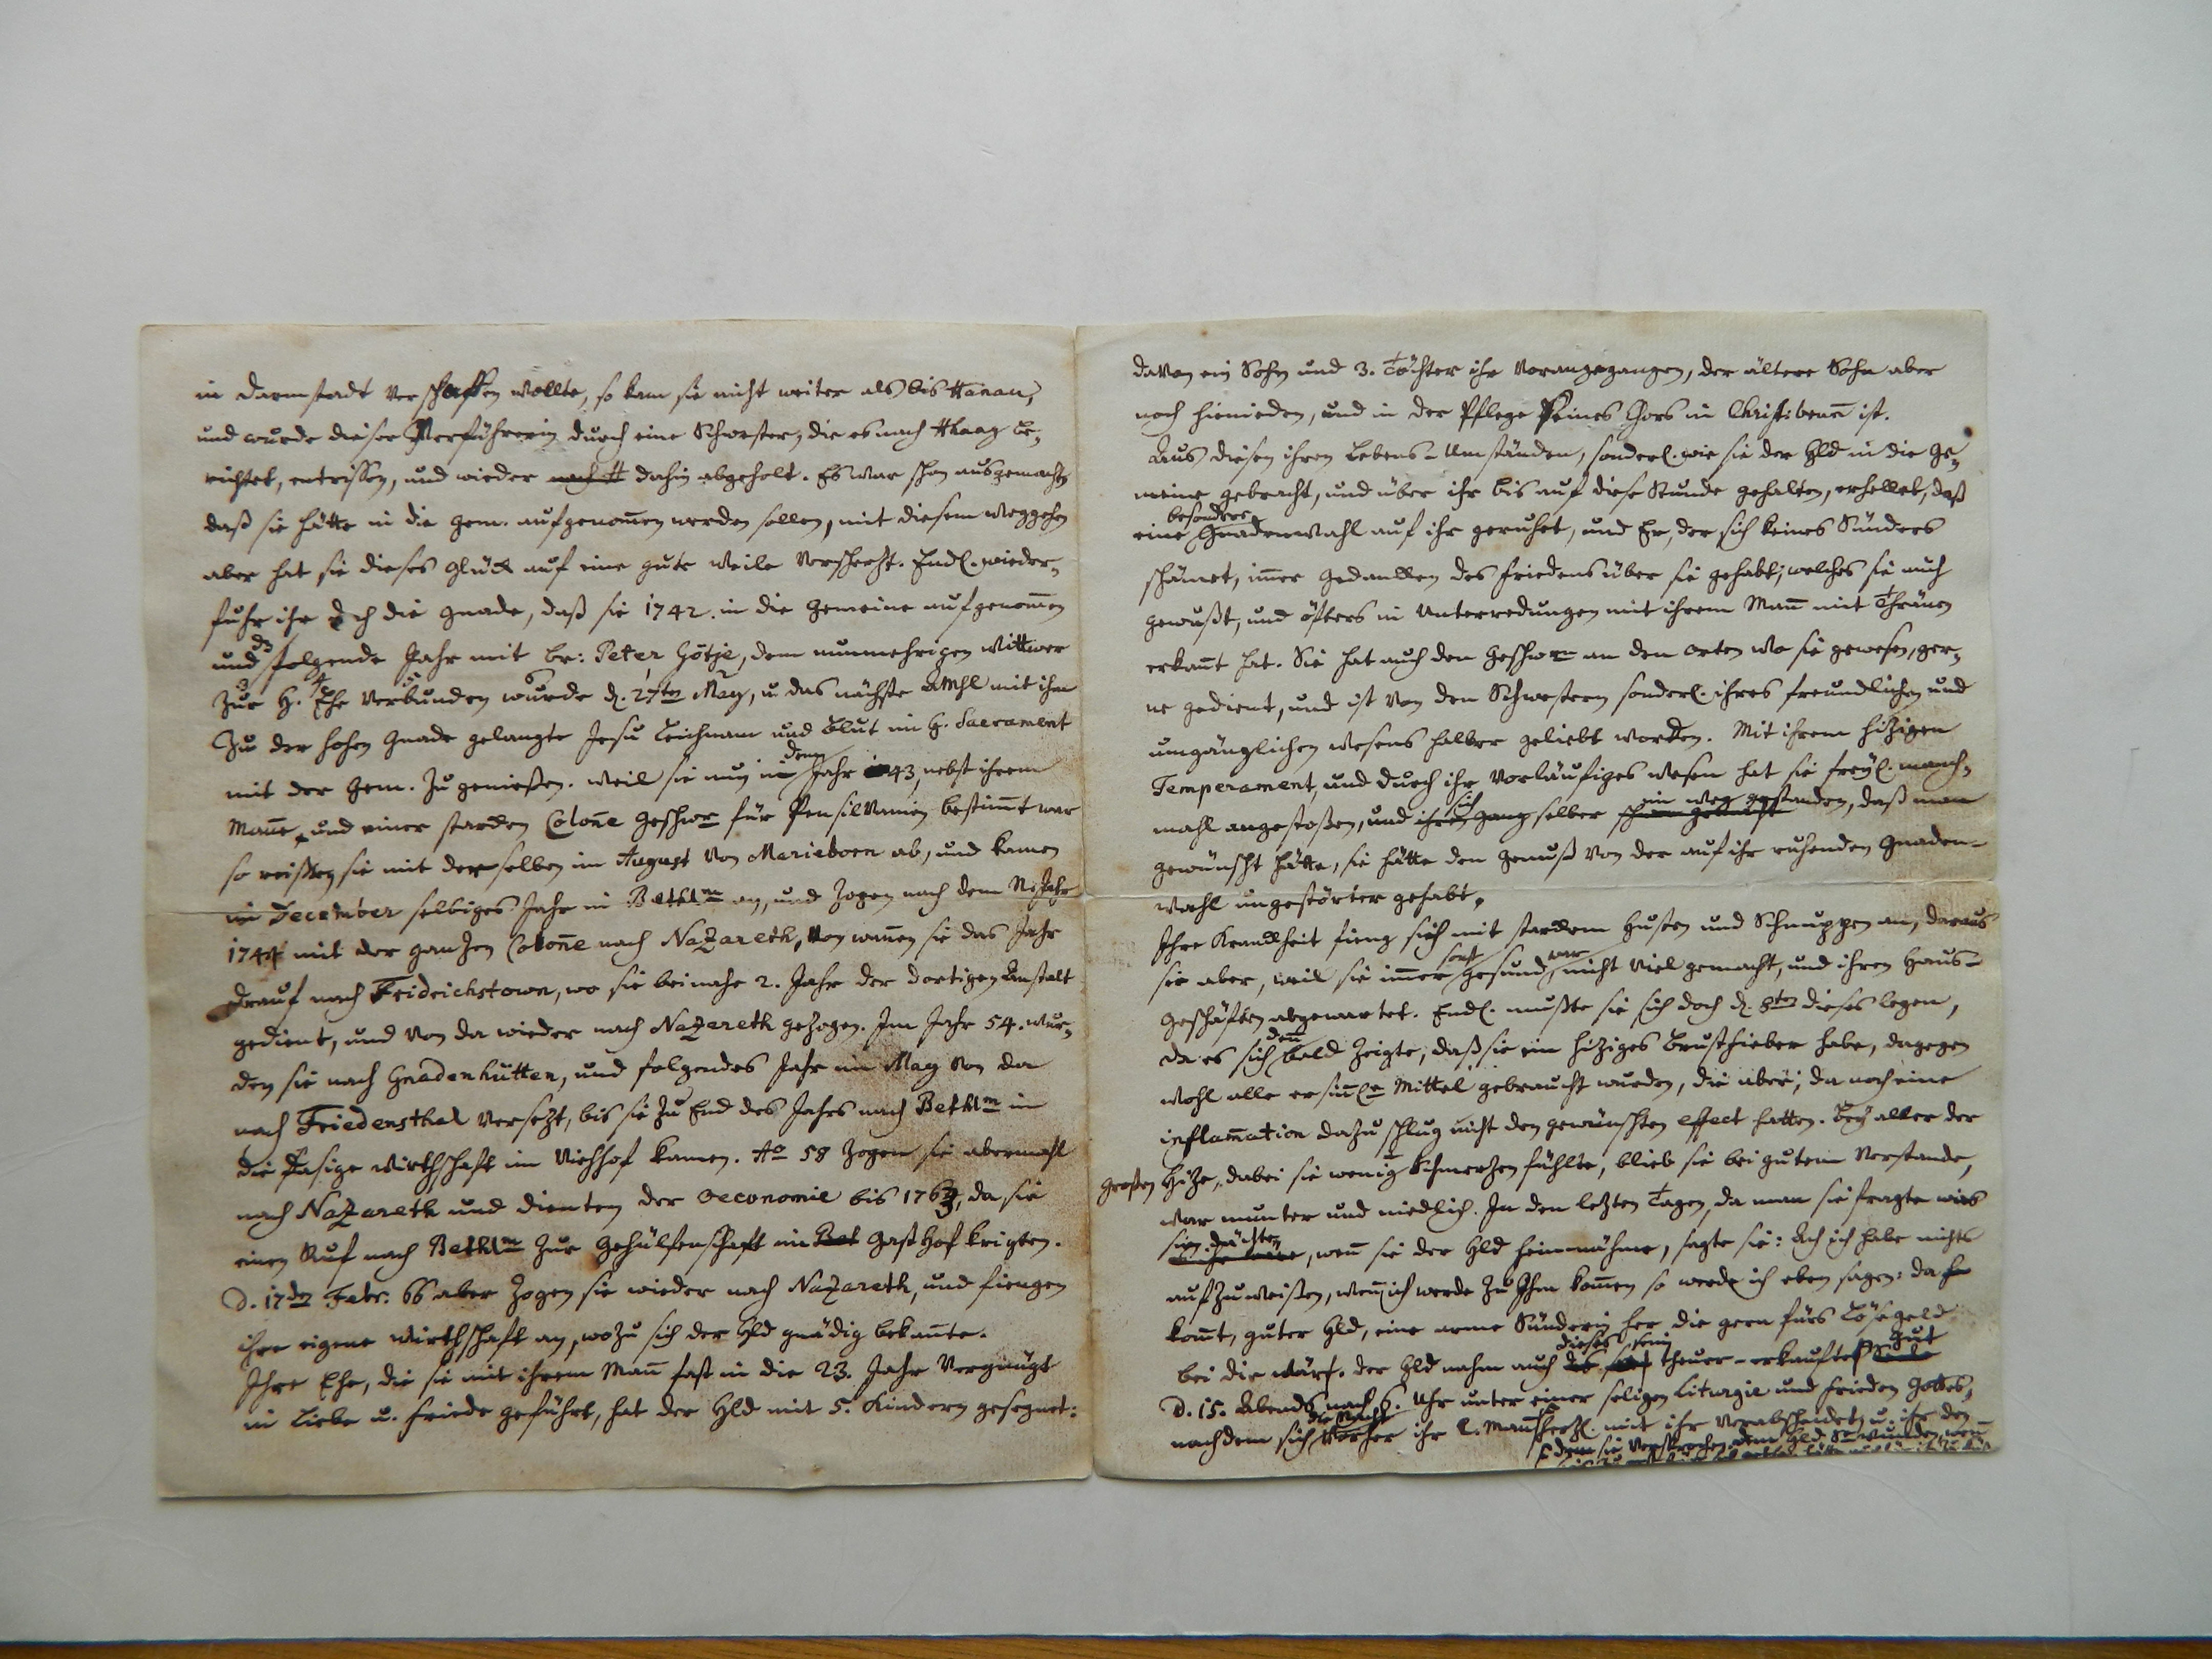 in Darmstadt verschaffen wollte, so kam sie nicht weiter als bis Hanau,
und wurde dieser Verführerin durch eine Schwester, die es nach Hhaag be-
richtet, entrissen, und wieder nach H dahin abgeholt. Es war schon ausgemacht,
daß sie hätte in die Gem. aufgenom̄en werden sollen, mit diesem weggehen
aber hat sie dieses Glück auf eine gute Weile verscherzt. Endl. wieder-
fuhr ihr doch die Gnade, daß sie 1742. in die Gemeine aufgenom̄en
und folgende Jahr mit Br: Peter Götje, dem nunmehrigen Wittwer
zur H. Ehe verbunden wurde d. 27ten May, u. das nächste AMhl mit ihm
zu der hohen Gnade gelangte Jesu Leichnam und Blut im H. Sacrament
mit der Gem. zu genießen. Weil sie nun in dem Jahr 43, nebst ihrem
Mañe, und einer starcken Coloñe Geschwr für Pensilvanien bestim̄t war
so reißten sie mit derselben im August von Marieborn ab, und kamen
im December selbiges Jahr in Bethlm an, und zogen nach dem N. Jahr
1744 mit der ganzen Coloñe nach Nazareth, von wañen sie das Jahr
drauf nach Fridrichstown, wo sie beinahe 2. Jahr der dortigen Anstalt
gedient, und von da wieder nach Nazareth gezogen. Im Jahr 54. wur-
den sie nach Gnadenhütten, und folgendes Jahr im May von da
nach Friedensthal versezt, bis sie zu End des Jahrs nach Bethlm in
die hasige Wirthschaft im Viehhof kamen. Ao 58 zogen sie abermahl
nach Nazareth und dienten der Oeconomie bis 1763, da sie
einen Ruf nach Bethlm zur Gehülfenschaft im Bet Gasthof krigten.
D. 17den Febr. 66 aber zogen sie wieder nach Nazareth, und fiengen
ihre eigene Wirthschaft an, wozu sich der Hld gnädig bekañte.
Ihre Ehe, die sie mit ihrem Mañ fast in die 23. Jahr vergnügt
in Liebe u. Friede geführt, hat der Hld mit 5. Kindern gesegnet:
davon ein Sohn und 3. Töchter ihr vorangegangen, der ältere Sohn aber
noch hienieden, und in der Pflege seines Chors in Christibruñ ist.
Aus diesen ihren Lebens-Umständen, sonderl. wie sie der Hld in die Ge-
meine gebracht, und über ihr bis auf diese Stunde gehalten, erhellet, daß
eine besondere Gnadenwahl auf ihr geruhet, und Er, der sich keines Sünders
schämet, im̄er Gedancken des Friedens über sie gehabt; welches sie auch
gewußt, und öfters in Unterredungen mit ihrem Mañ mit Thränen
erkañt hat. Sie hat auch den Geschwrn an den Orten wo sie gewesen, ger-
ne gedient, und ist von den Schwestern sonderl. ihres freundlichen und
umgänglichen Wesens halber geliebt worden. Mit ihrem hizigen
Temperament, und durch ihr vorläufiges Wesen hat sie freyl. manch-
mahl angestoßen, und sich selber im Weg gestanden, daß man
gewünscht hätte, sie hätte den Genuß von der auf ihr ruhenden Gnaden-
wahl ungestörter gehabt.
Ihre Kranckheit fieng sich mit starckem Husten und Schnuppen an, daraus
sie aber, weil sie im̄er sonst gesund war, nicht viel gemacht, und ihren Haus-
Geschäften abgewartet. Endl. mußte sie sich doch d. 8ten dieses legen,
da es sich deñ bald zeigte, daß sie ein hiziges Brustfieber habe, dagegen
wohl alle ersiñl. Mittel gebraucht wurden, die aber, da noch eine
inflam̄ation dazu schlug nicht den gewünschten effect hatten. Bey aller der
großen Hize, dabei sie wenig Schmerzen fühlte, blieb sie bei gutem Verstande,
war munter und niedlich. In den lezten Tagen, da man sie fragte was
sie dächte, weñ sie der Hld heimnähme, sagte sie: Ach ich habe nichts
aufzuweißen, weñ ich werde zu Ihm kom̄en so werde ich eben sagen: da
kom̄t, guter Hld, eine arme Sünderin her die gern fürs Lösegeld
bei dir wär. Der Hld nahm auch dieses sein theuer-erkauftes Gut
D. 15. Abends nach 6. Uhr unter einer seligen Liturgie und Frieden Gottes,
nachdem sich die Nacht vorher ihr l. Mañ herzl. mit ihr verabscheidet, u. ihr den